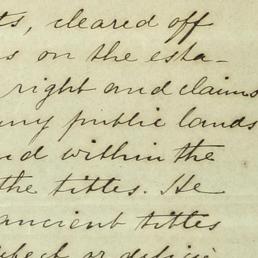 ts, cleared off
s on the esta-
right and claims
any public lands
nd within the
the titles. He
ancient titles